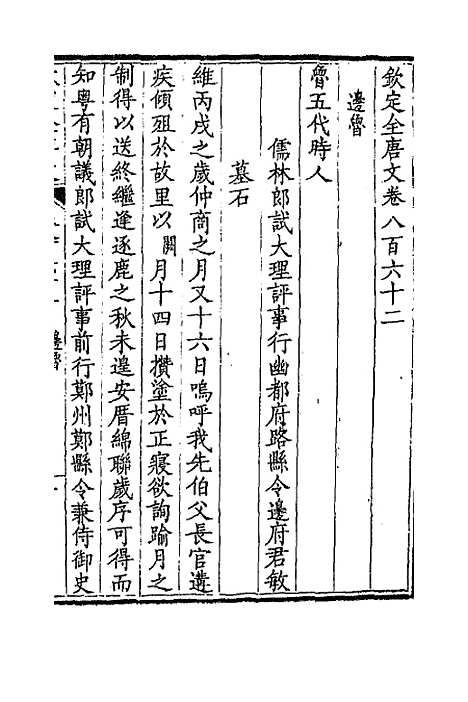 欽定全唐文卷八百六十二
邊魯
魯五代時人
儒林郎試大理評事行幽都府路縣令邊府君敏
墓石
維丙戌之歲仲商之月又十六日嗚呼我先伯父長官遘
疾傾殂於故里以闕月十四日攢塗於正寢欲詢踰月之
制得以送終繼逢逐鹿之秋未遑安厝綿聯歲序可得而
知粵有朝議郎試大理評事前行鄭州鄭縣令兼侍御史
邊魯